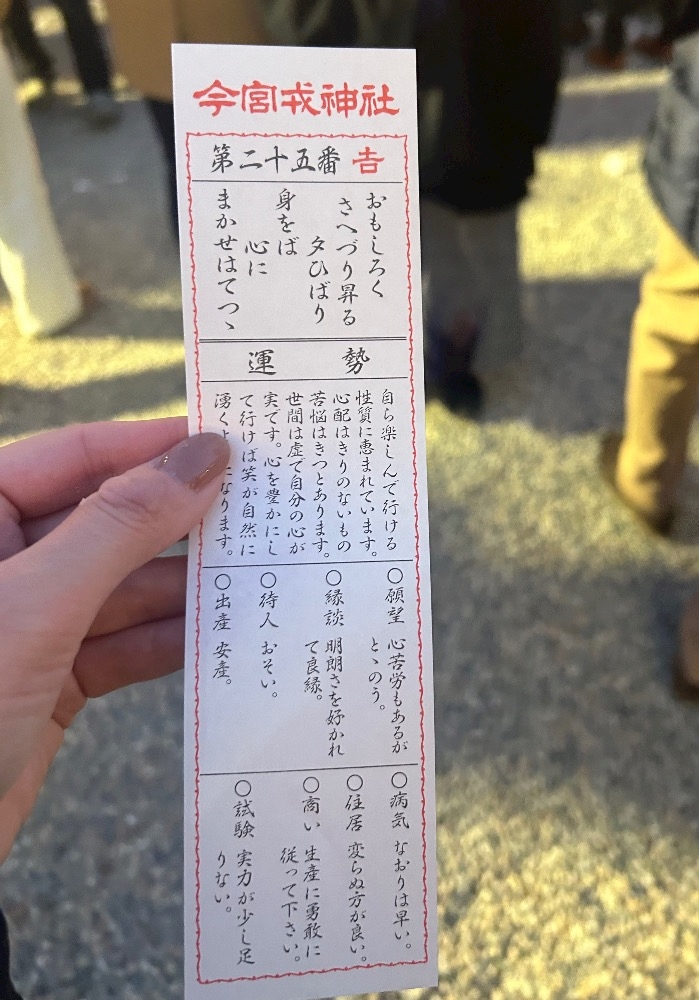 今宮戎神社
第二十五番 吉
おもしろく
さへづり昇る
夕ひばり
身をば
心に
まかせはてつゝ
運勢
自ら楽しんで行ける
性質に恵まれています。
心配はきりのないもの
苦悩はきつとあります。
世間は虚で自分の心が
実です。心を豊かにし
て行けば笑が自然に
湧く になります。
〇願望 心苦労もあるが
とゝのう。
〇縁談 明朗さを好かれ
て良縁。
〇待人 おそい。
〇出産 安産。
〇病気 なおりは早い。
〇住居 変らぬ方が良い。
〇商い 生産に勇敢に
従って下さい。
〇試験 実力が少し足
りない。